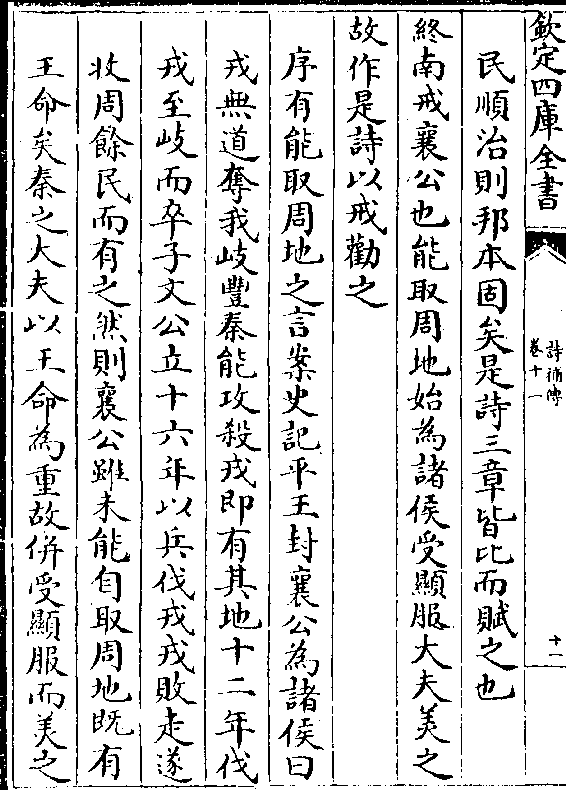 欽定四庫全書
詩補傳
卷十一
十一
民順治則邦本固矣是詩三章皆比而賦之也
終南戒襄公也能取周地始為諸侯受顯服大夫美之
故作是詩以戒勸之
序有能取周地之言案史記平王封襄公為諸侯曰
戎無道奪我岐豐秦能攻殺戎即有其地十二年伐
戎至岐而卒子文公立十六年以兵伐戎戎敗走遂
收周餘民而有之然則襄公雖未能自取周地既有
王命矣秦之大夫以王命為重故併受顯服而美之